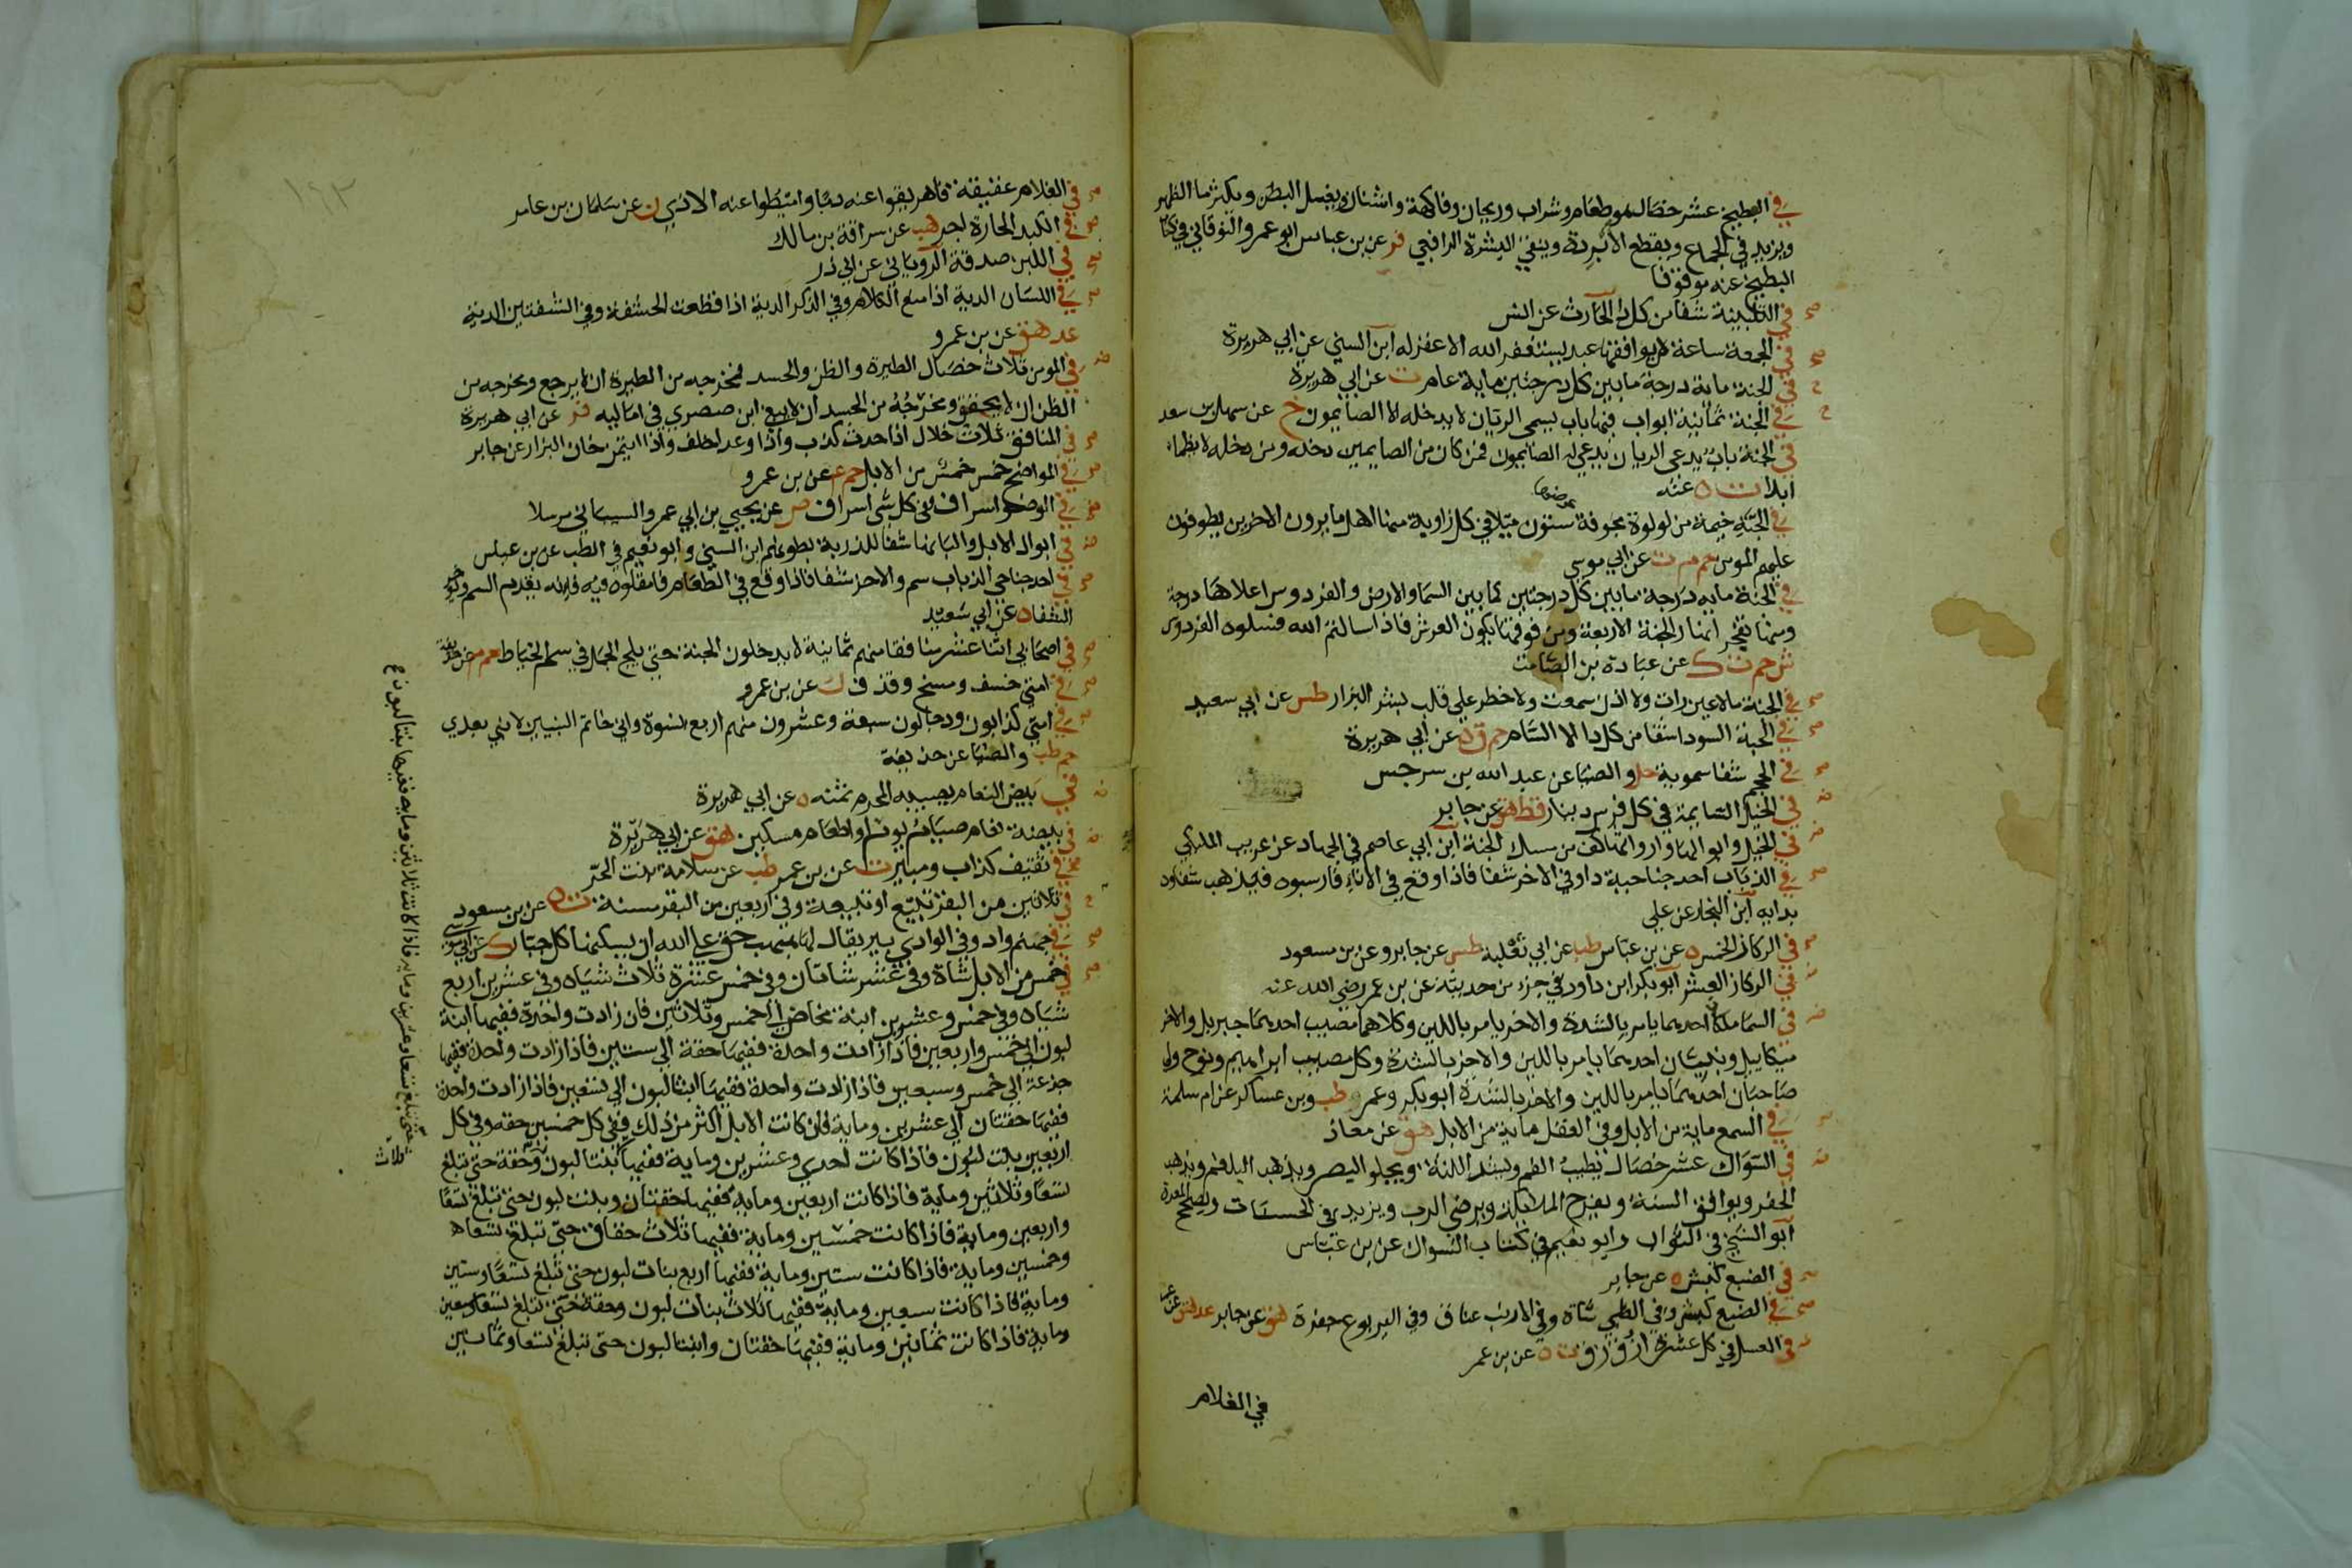 في البطيخ عشر خصال هو طعام وشراب وريحان وفاكهة واشنان ويغسل البطن ويكثر ما الظهر
ويزيد في الجماع ويقطع الابردة وينقي البشرة الرافعي فر عن بن عباس ابو عمرو النوقاني في كتاب
البطيخ عنه موقوفا
في التلبينة شفا من كل دا الحارث عن انس
في الجمعة ساعة لا يوافقها عبد يستغفر الله الا غفر له ابن السني عن ابي هريرة
في الجنة ماية درجة ما بين كل درجتين ماية عام ت عن ابي هريرة
في الجنة ثمانية ابواب فيها باب يسمى الريان لا يدخله الا الصايمون خ عن سهل بن سعد
في الجنة باب يدعى الريان يدعى له الصايمون فمن كان من الصايمين دخله ومن دخله لا يظما
ابدا ت ه عنه
في الجنة خيمة من لولوة مجوفة عرضها ستون ميلا في كل زاوية منها اهل ما يرون الاخرين يطوفون
عليهم المومن حم م ت عن ابي موسى
في الجنة ماية درجة ما بين كل درجتين كما بين السما والارض والفردوس اعلاها درجة
ومنها تفجر انهار الجنة الاربعة ومن فوقها يكون العرش فاذا سالتم الله فسلوه الفردوس
ش حم ت ك عن عبادة بن الصامت
في الجنة ما لا عين رات ولا اذن سمعت ولا خطر على قلب بشر البزار طس عن ابي سعيد
في الحبة السودا شفا من كل دا الا السام حم ق ه عن ابي هريرة
في الحجم شفا سموية حل والضيا عن عبد الله بن سرجس
في الخيل السايمة في كل فرس دينار قط هق عن جابر
في الخيل وابوالها وارواثها كف من مسك الجنة ابن ابي عاصم في الجهاد عن عريب المليكي
في الذباب احد جناحيه دا وفي الاخر شفا فاذا وقع في الاناء فارسبوه فيذهب شفاوه
بدايه ابن النجار عن علي
في الركاز الخمس ه عن بن عباس طب عن ابي ثعلبة طس عن جابر وعن بن مسعود
في الركاز العشر ابو بكر ابن داود في جزء من حديثه عن بن عمر رضي الله عنه
في السما ملكان احدهما يامر بالشدة والاخر يامر باللين وكلاهما مصيب احدهما جبريل والاخر
ميكاييل ونبيان احدهما يامر باللين والاخر بالشدة وكل مصيب ابراهيم ونوح ولي
صاحبان احدهما يامر باللين والاخر بالشدة ابو بكر وعمر طب وبن عساكر عن ام سلمة
في السمع ماية من الابل وفي العقل ماية من الابل هق عن معاذ
في السواك عشر خصال يطيب الفم ويشد اللثة ويجلو البصر ويذهب البلغم ويذهب
الحفر ويوافق السنة ويفرح الملايكة ويرضي الرب ويزيد في الحسنات ويصحح المعدة
ابو الشيخ في الثواب وابو نعيم في كتاب السواك عن بن عباس
في الضبع كبش ه عن جابر
في الضبع كبش وفي الظبي شاة وفي الارنب عناق وفي اليربوع جفرة هق عن جابر عد هق عن عمر
في العسل في كل عشرة ازق زق ت ه عن بن عمر
في الغلام
١٦٢
في الغلام عقيقة فاهريقوا عنه دما واميطوا عنه الاذى ن عن سلمان بن عامر
في الكبد الحارة اجر هب عن سراقة بن مالك
في اللبن صدقة الروياني عن ابي ذر
في اللسان الدية اذا منع الكلام وفي الذكر الدية اذا قطعت الحشفة وفي الشفتين الدية
عد هق عن بن عمرو
في المومن ثلاث خصال الطيرة والظن والحسد فمخرجه من الطيرة ان لا يرجع ومخرجه من
الظن ان لا يحقق ومخرجه من الحسد ان لا يبغي ابن صصري في اماليه فر عن ابي هريرة
في المنافق ثلاث خلال اذا حدث كذب واذا وعد اخلف واذا ايتمن خان البزار عن جابر
في المواضح خمس خمس من الابل حم ع عن بن عمرو
في الوضو اسراف وفي كل شى اسراف ص عن يحيى بن ابي عمرو السيباني مرسلا
في ابوال الابل والبانها شفا للذربة بطونهم ابن السني وابو نعيم في الطب عن بن عباس
في احد جناحي الذباب سم والاخر شفا فاذا وقع في الطعام فامقلوه فيه فانه يقدم السم ويوخر
الشفا ه عن ابي سعيد
في اصحابي اثنا عشر منافقا منهم ثمانية لا يدخلون الجنة حتى يلج الجمل في سم الخياط حم م عن حذيفة
في امتي خسف ومسخ وقذف ك عن بن عمرو
في امتي كذابون ودجالون سبعة وعشرون منهم اربع نسوة واني خاتم النبيين لا نبي بعدي
حم طب والضيا عن حذيفة
في بيض النعام يصيبه المحرم ثمنه ه عن ابي هريرة
في بيضة نعام صيام يوم او اطعام مسكين هق عن ابي هريرة
في ثقيف كذاب ومبير ت عن بن عمر طب عن سلامة بنت الحر
في ثلاثين من البقر تبيع او تبيعة وفي اربعين من البقر مسنة ت ه عن بن مسعود
في جهنم واد وفي الوادي بير يقال لها هبهب حق على الله ان يسكنها كل جبار ك عن ابي موسى
في خمس من الابل شاة وفي عشر شاتان وفي خمس عشرة ثلاث شياه وفي عشرين اربع
شياه وفي خمس وعشرين ابنة مخاض الى خمس وثلاثين فان زادت واحدة ففيها ابنة
لبون الى خمس واربعين فاذا زادت واحدة ففيها حقة الى ستين فاذا زادت واحدة ففيها
جذعة الى خمس وسبعين فاذا زادت واحدة ففيها ابنتا لبون الى تسعين فاذا زادت واحدة
ففيها حقتان الى عشرين وماية فان كانت الابل اكثر من ذلك ففي كل خمسين حقه وفي كل
اربعين بنت لبون فاذا كانت احدى وعشرين وماية ففيها ثلاث بنات لبون وحقة حتى تبلغ
تسعا وثلاثين وماية فاذا كانت اربعين وماية ففيها حقتان وبنت لبون حتى تبلغ تسعا
واربعين وماية فاذا كانت خمسين وماية ففيها ثلاث حقاق حتى تبلغ تسعا
وخمسين وماية فاذا كانت ستين وماية ففيها اربع بنات لبون حتى تبلغ تسعا وستين
وماية فاذا كانت سبعين وماية ففيها ثلاث بنات لبون وحقة حتى تبلغ تسعا وسبعين
وماية فاذا كانت ثمانين وماية ففيها حقتان وابنتا لبون حتى تبلغ تسعا وثمانين
حتى تبلغ تسعا وعشرين وماية فاذا كانت ثلاثين وماية ففيها بنتا لبون
ثلاث